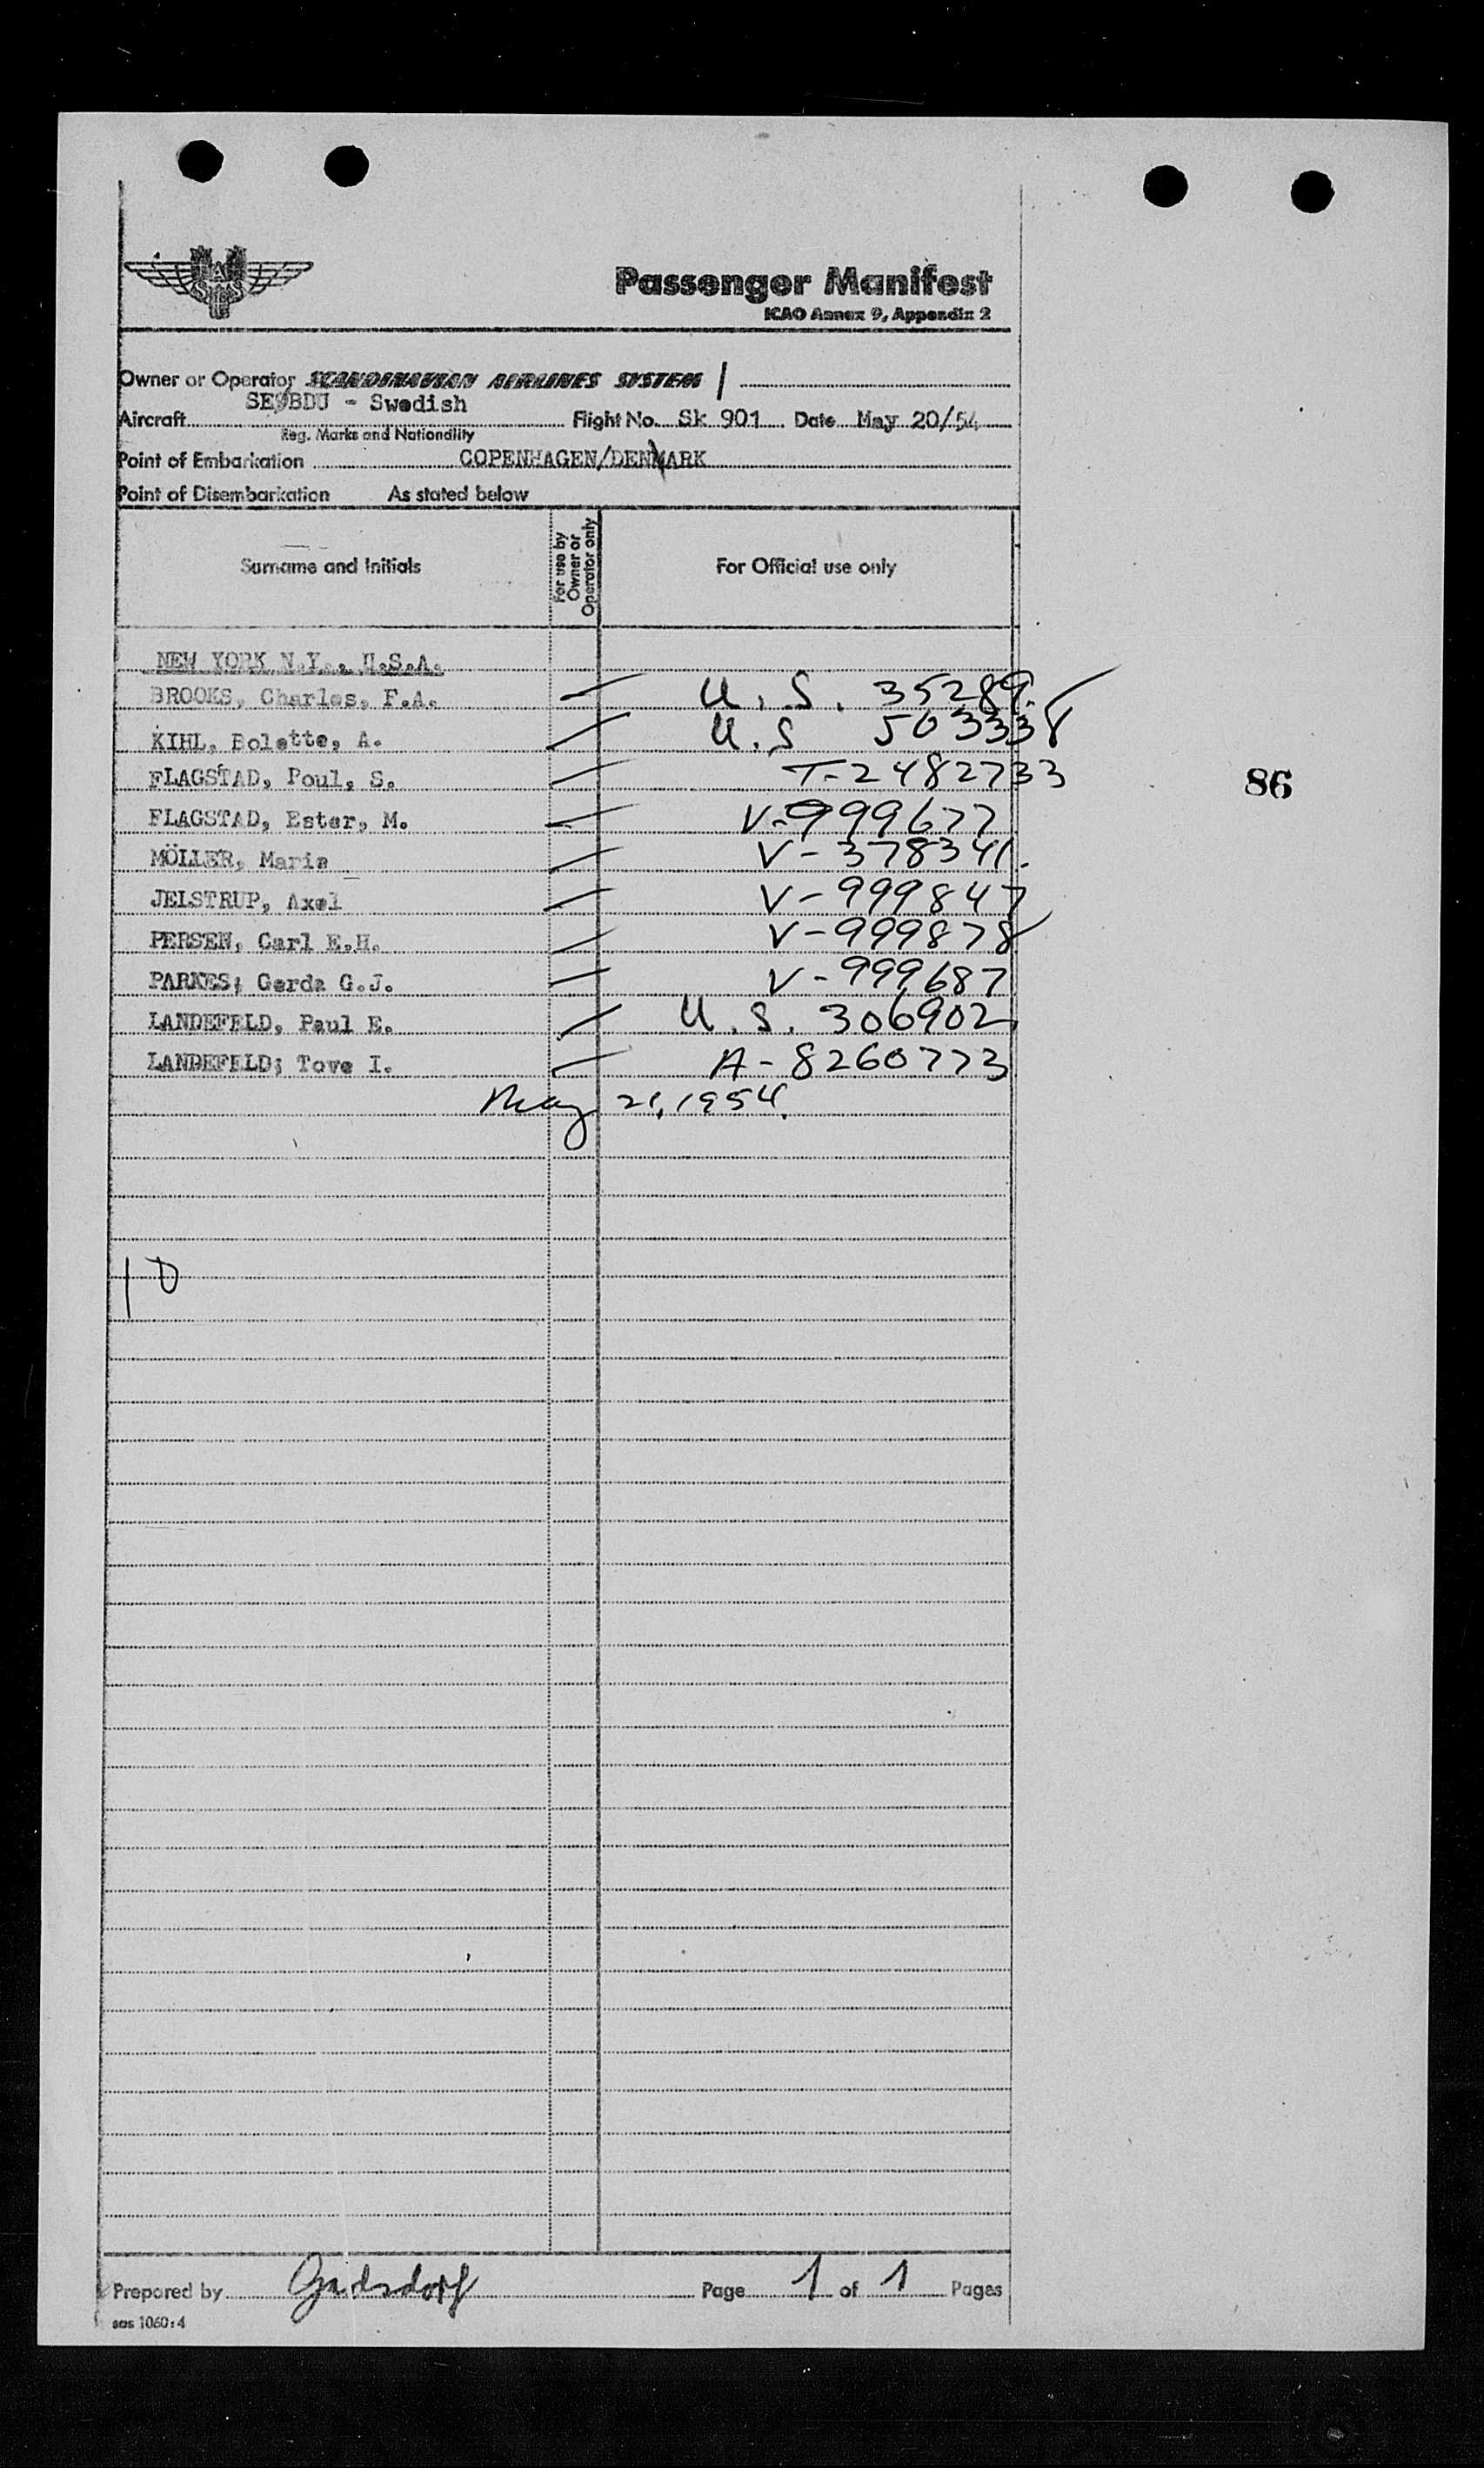 SAS
Passenger Manifest
ICAO Annex 9, Appendix 2
Owner or Operator SCANDINAVIAN AIRLINES SYSTEM
SE-BDU - Swedish
Aircraft Flight No. Sk 901 Date May 20/54
Reg. Marks and Nationality
Point of Embarkation COPENHAGEN/DENMARK
Point of Disembarkation As stated below
Surname and Initials For use by Owner or Operator only For Official use only
NEW YORK N.Y., U.S.A.
BROOKS, Charles, F.A. U.S. 35289
KIHL, Bolette, A. U.S 503338
FLAGSTAD, Poul, S. T-2482733
86
FLAGSTAD, Ester, M. V-999677
MÖLLER, Marie V-378341.
JELSTRUP, Axel V-999847
PERSEN, Carl E.H. V-999878
PARKES; Gerda G.J. V-999687
LANDEFELD, Paul E. U.S. 306902
LANDEFELD; Tove I. A-8260773
May 21, 1954.
10
Prepared by Page 1 of 1 Pages
sas 1060:4